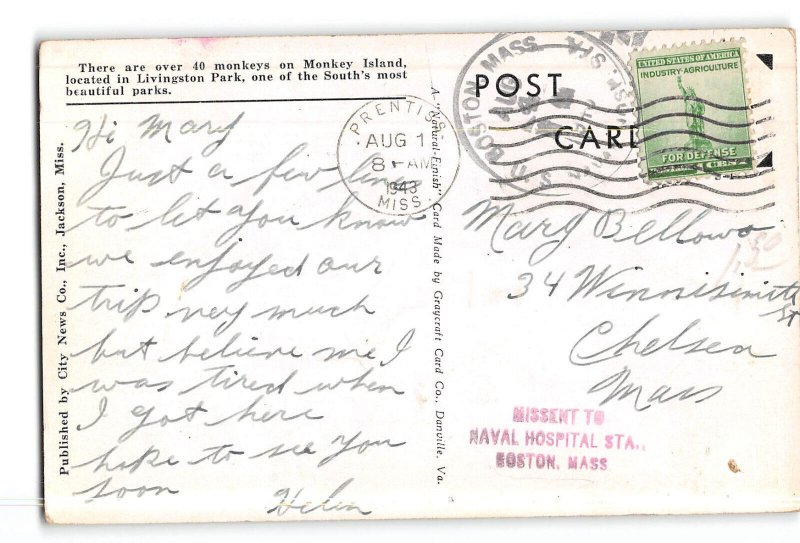 There are over 40 monkeys on Monkey Island,
located in Livingston Park, one of the South's most
beautiful parks.
Hi Mary
Just a few lines
to let you know
we enjoyed our
trip very much
but believe me I
was tired when
I got here
hope to see you
soon
Helen
Published by City News Co., Inc., Jackson, Miss.
A "Natural-Finish" Card Made by Graycraft Card Co., Danville, Va.
PRENTISS
AUG 1
8 AM
1943
MISS.
POST
CARD
BOSTON, MASS.
AUG
UNITED STATES OF AMERICA
INDUSTRY-AGRICULTURE
FOR DEFENSE
Mary Bellows
34 Winnisimitt
St
Chelsea
Mass
1.50
MISSENT TO
NAVAL HOSPITAL STA.,
BOSTON, MASS